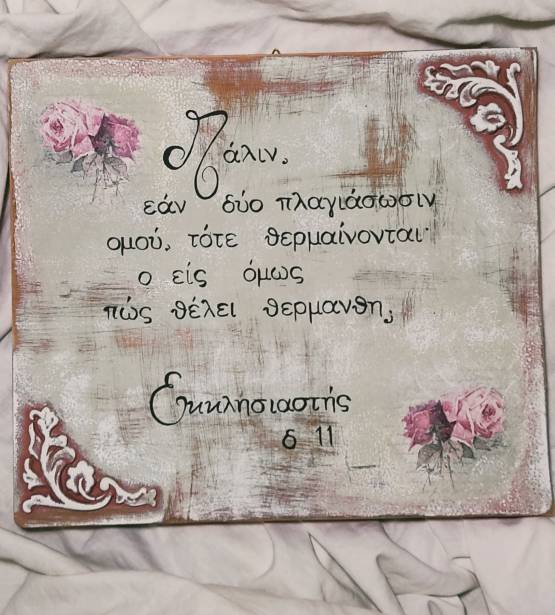 Πάλιν,
εάν δύο πλαγιάσωσιν
ομού, τότε θερμαίνονται·
ο είς όμως
πώς θέλει θερμανθη;
Εκκλησιαστής
δ 11